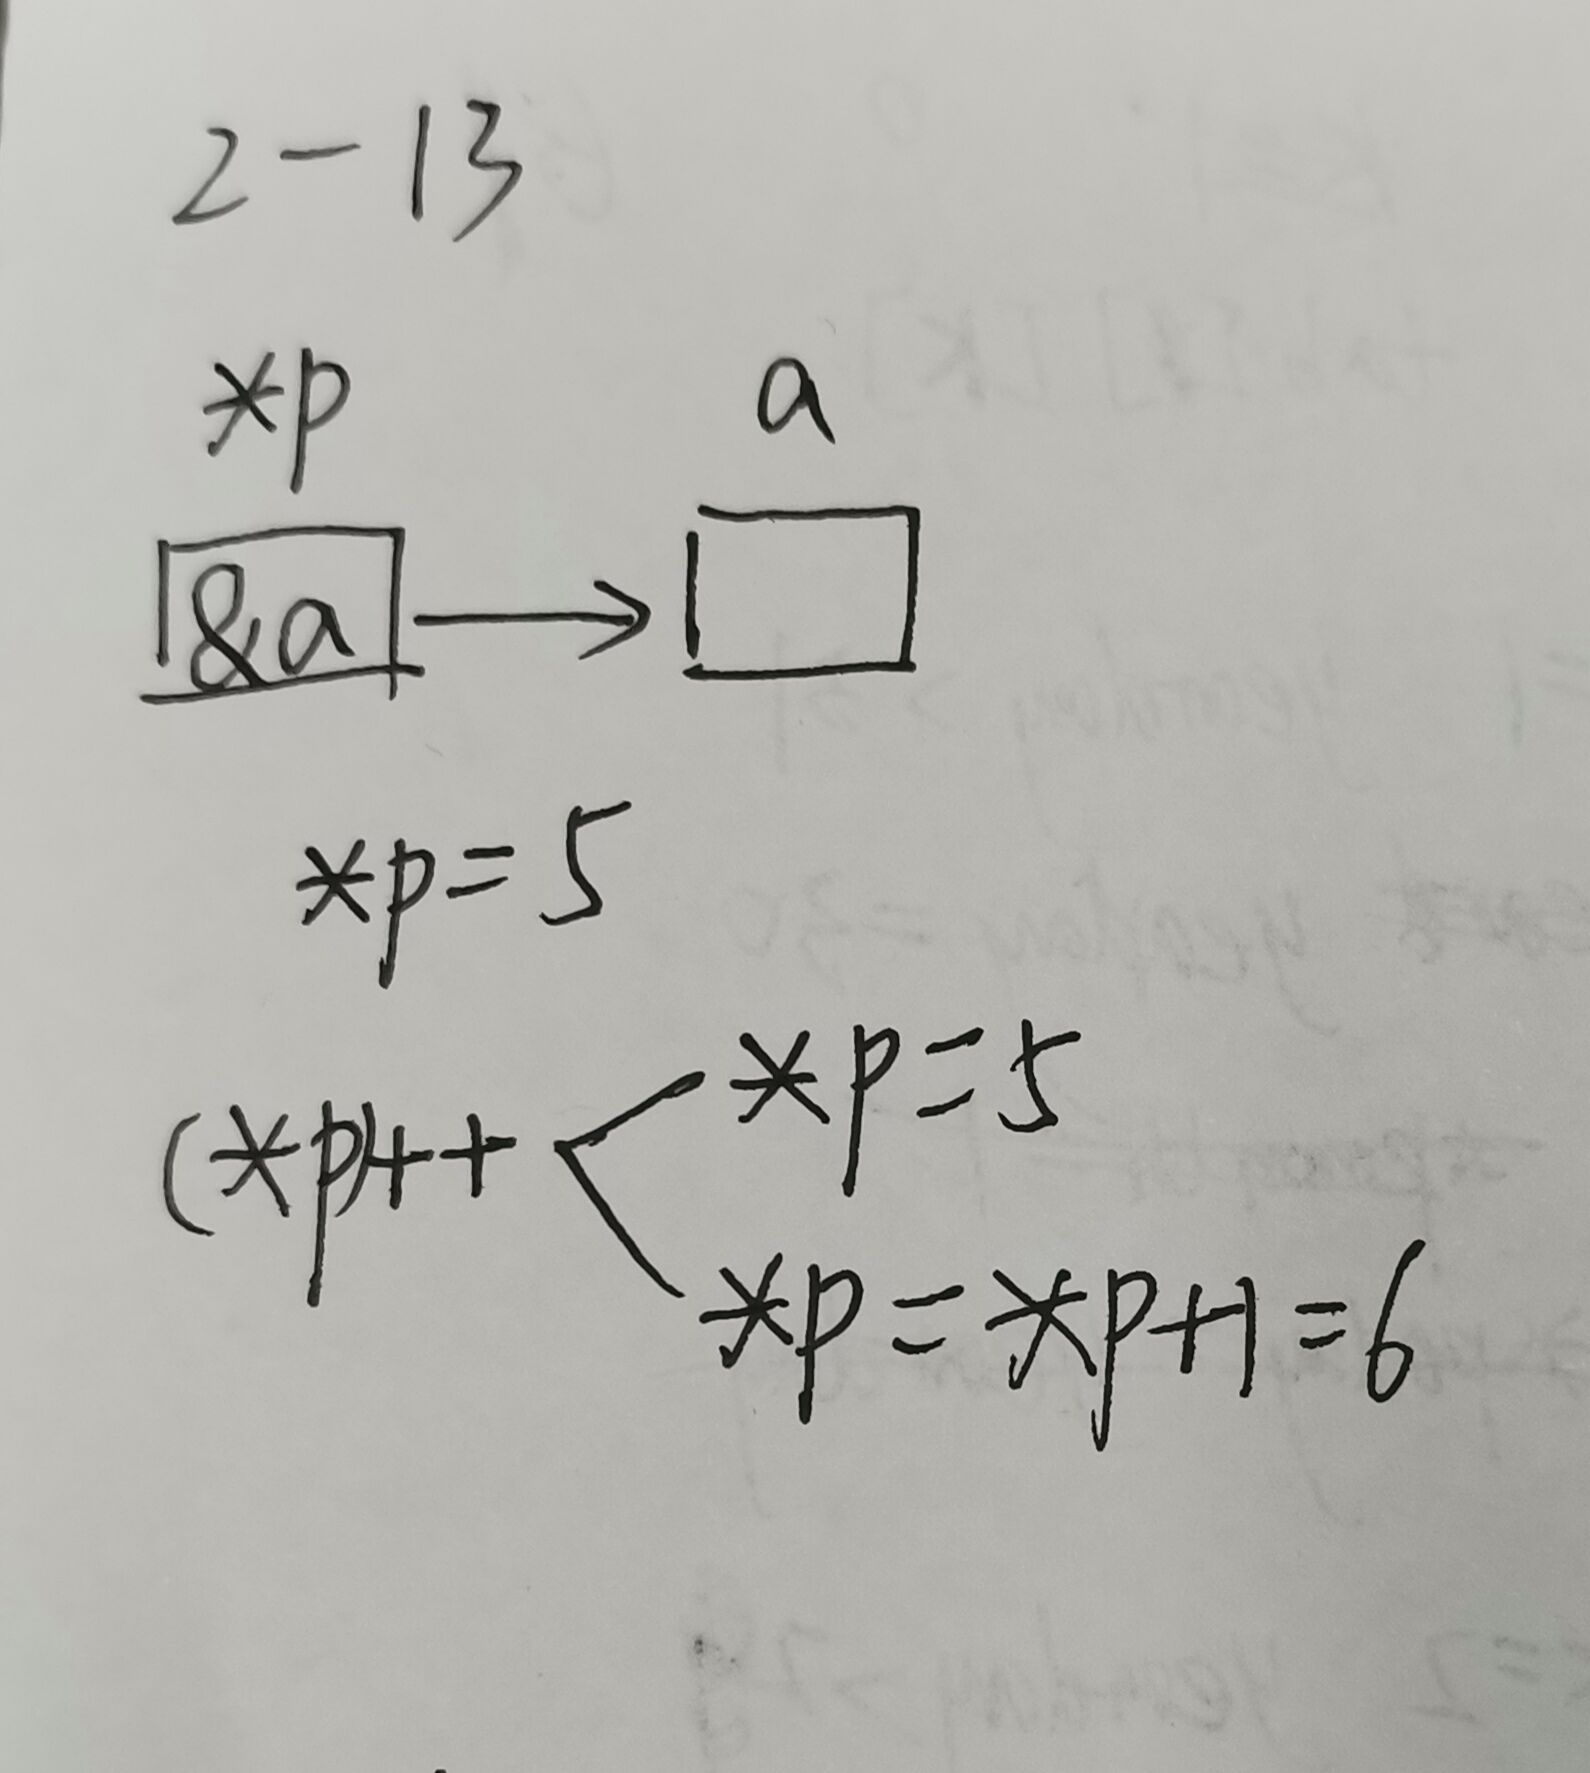 2-13
*p a
&a
*p=5
*p=5
(*p)++
*p=*p+1=6